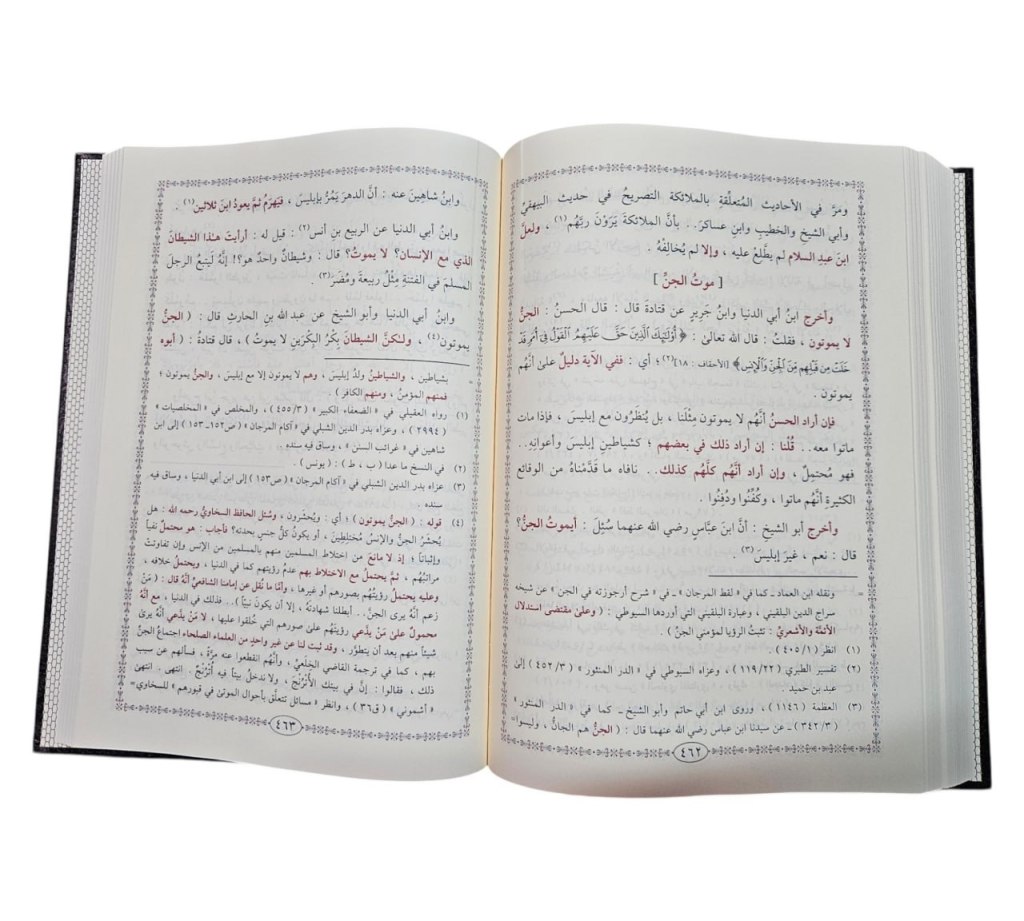 ومَرَّ في الأحاديث المُتعلِّقةِ بالملائكة التصريحُ في حديث البيهقيِّ
وأبي الشيخ والخطيب وابنِ عساكرَ.. بأنَّ الملائكةَ يَرَوْنَ ربَّهُم(١) ، ولعلَّ
ابنَ عبدِ السلام لم يطَّلِعْ عليه ، وإلا لم يُخالِفْهُ .
[ موتُ الجنِّ ]
وأخرج ابنُ أبي الدنيا وابنُ جَريرٍ عن قتادةَ قال : قال الحسنُ : الجنُّ
لا يموتون ، فقلتُ : قال الله تعالىٰ : ﴿ أُوْلَٰٓئِكَ ٱلَّذِينَ حَقَّ عَلَيْهِمُ ٱلْقَوْلُ فِىٓ أُمَمٍ قَدْ
خَلَتْ مِن قَبْلِهِم مِّنَ ٱلْجِنِّ وَٱلْإِنسِ﴾ [الأحقاف : ١٨](٢) ؛ أي : ففي الآية دليلٌ علىٰ أنَّهُم
يموتون .
فإن أراد الحسنُ أنَّهُم لا يموتون مثْلَنا ، بل يُنظَرُون مع إبليسَ ، فإذا مات
ماتوا معه.. قُلْنا : إن أراد ذلك في بعضهم ؛ كشياطينِ إبليسَ وأعوانِهِ..
فهو مُحتمِلٌ ، وإن أراد أنَّهُم كلَّهُم كذلك.. نافاه ما قدَّمْناهُ من الوقائع
الكثيرةِ أنَّهُم ماتوا ، وكُفِّنُوا ودُفِنُوا .
وأخرج أبو الشيخ : أنَّ ابنَ عبَّاسٍ رضي الله عنهما سُئِلَ : أيموتُ الجنُّ؟
قال : نعم ، غيرَ إبليسَ(٣) .
= ونقله ابن العماد ـ كما في « لقط المرجان » ـ في « شرح أرجوزته في الجن » عن شيخه
سراج الدين البلقيني ، وعبارة البلقيني التي أوردها السيوطي : ( وعلى مقتضى استدلال
الأئمَّة والأشعريِّ : تثبتُ الرؤيا لمؤمني الجنِّ ) .
(١) انظر (٤٠٥/١) .
(٢) تفسير الطبري (١١٩/٢٢) ، وعزاه السيوطي في « الدر المنثور » (٤٥٢/٣) إلىٰ
عبد بن حميد .
(٣) العظمة (١١٤٦) ، وروى ابن أبي حاتم وأبو الشيخ ـ كما في « الدر المنثور »
(٣٤٢/٣) ـ عن سيدنا ابن عباس رضي الله عنهما قال : ( الجنُّ هم الجانُّ ، وليسوا=
٤٦٢
وابنُ شاهينَ عنه : أنَّ الدهرَ يَمُرُّ بإبليسَ ، فيَهْرَمُ ثمَّ يعودُ ابنَ ثلاثين(١) .
وابنُ أبي الدنيا عن الربيع بن أنس(٢) : قيل له : أرأيتَ هـٰذا الشيطانَ
الذي مع الإنسان؟ لا يموتُ؟ قال : وشيطانٌ واحدٌ هو؟! إنَّهُ لَيَتبعُ الرجلَ
المسلمَ في الفتنةِ مِثْلُ ربيعةَ ومُضَرَ(٣) .
وابنُ أبي الدنيا وأبو الشيخ عن عبد الله بنِ الحارثِ قال : ( الجنُّ
يموتون(٤) ، ولـٰكنَّ الشيطانَ بِكْرُ البِكْرَينِ لا يموتُ ) ، قال قتادةُ : ( أبوه
= بشياطين ، والشياطينُ ولدُ إبليسَ ، وهم لا يموتون إلا مع إبليسَ ، والجنُّ يموتون ؛
فمنهم المؤمنُ ، ومنهم الكافر ) .
(١) رواه العقيلي في « الضعفاء الكبير » (٤٥٥/٣) ، والمخلص في « المخلصيات »
(٢٩٩٤) ، وعزاه بدر الدين الشبلي في « آكام المرجان » (ص١٥٢ـ١٥٣) إلى ابن
شاهين في « غرائب السنن » ، وساق فيه سنده .
(٢) في النسخ ما عدا ( ب ، ط ) : ( يونس ) .
(٣) عزاه بدر الدين الشبلي في « آكام المرجان » (ص١٥٣) إلى ابن أبي الدنيا ، وساق فيه
سنده .
(٤) قوله : ( الجنُّ يموتون ) ؛ أي : ويُحشرون ، وسُئل الحافظ السخاويُّ رحمه الله : هل
يُحشَرُ الجنُّ والإنسُ مُختلِطِين ، أو يكونُ كلُّ جنسٍ بحدته؟ فأجاب : هو محتملٌ نفياً
وإثباتاً ؛ إذ لا مانعَ من اختلاط المسلمين منهم بالمسلمين من الإنس وإن تفاوتتْ
مراتبُهُم ، ثمَّ يحتملُ مع الاختلاط بهم عدمُ رؤيتهم كما في الدنيا ، ويحتملُ خلافه ،
وعليه يحتملُ رؤيتُهُم بصورهم أو غيرها ، وأمَّا ما نُقل عن إمامنا الشافعيِّ أنَّهُ قال : ( مَنْ
زعم أنَّهُ يرى الجنَّ.. أبطلنا شهادتَهُ ، إلا أن يكون نبيّاً ).. فذلك في الدنيا ، مع أنَّهُ
محمولٌ علىٰ مَنْ يدَّعي رؤيتَهُم علىٰ صورهم التي خُلقوا عليها ، لا مَنْ يدَّعي أنَّهُ يرىٰ
شيئاً منهم بعد أن يتطوَّر ، وقد ثبت لنا عن غير واحدٍ من العلماء الصلحاء اجتماعُ الجنِّ
بهم ، كما في ترجمة القاضي الخِلَعيِّ ، وأنَّهُم انقطعوا عنه مرَّةً ، فسألهم عن سبب
ذلك ، فقالوا : إنَّ في بيتك الأُتْرُنْجَ ، ولا ندخلُ بيتاً فيه أُتْرُنْجٌ . انتهى . انتهىٰ
« أشموني » (ق٣٦) ، وانظر « مسائل تتعلَّق بأحوال الموتىٰ في قبورهم » للسخاوي=
٤٦٣